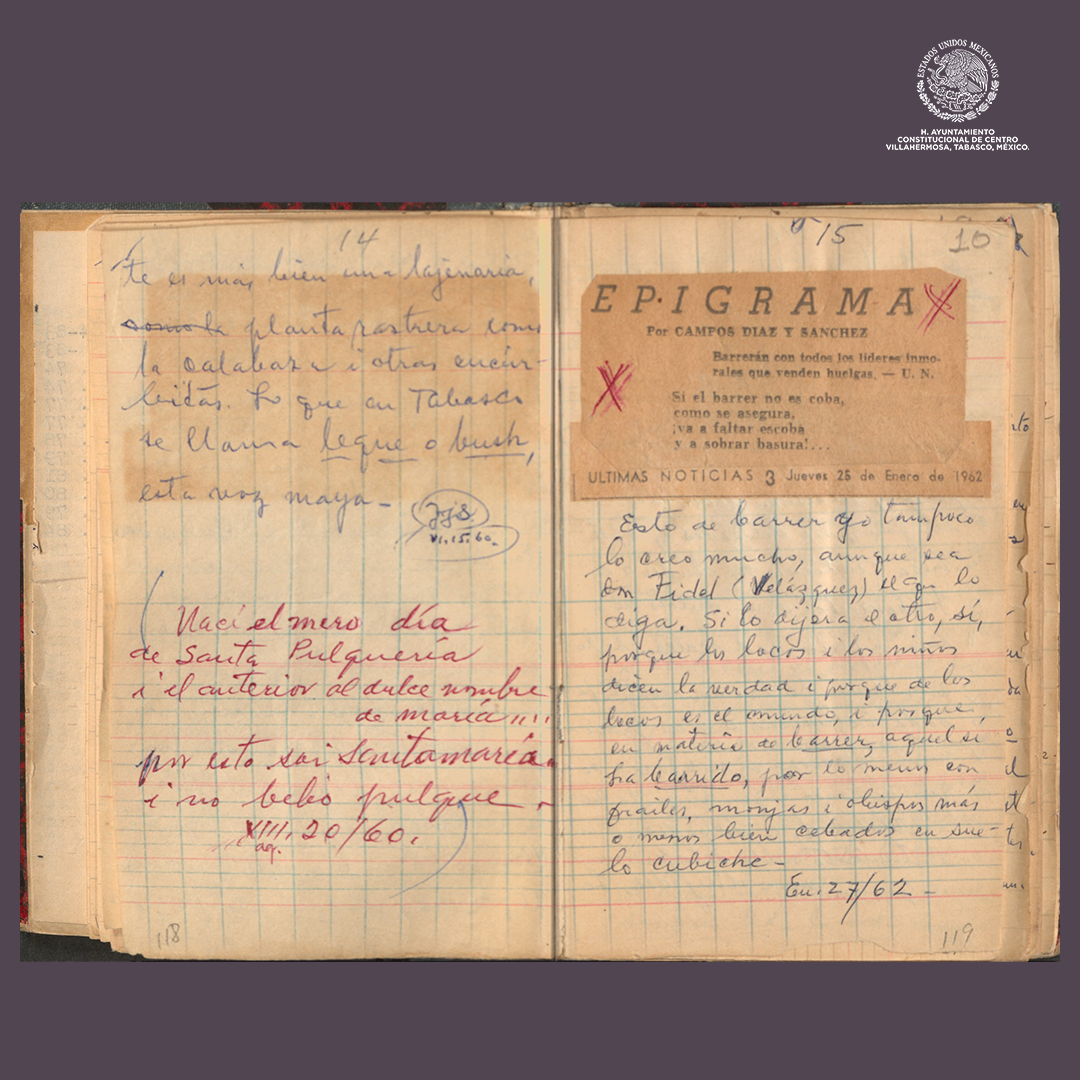 ESTADOS UNIDOS MEXICANOS
H. AYUNTAMIENTO
CONSTITUCIONAL DE CENTRO
VILLAHERMOSA, TABASCO, MÉXICO.
14
te es más bien una lajenaria,
como la planta rastrera como
la calabaza i otras encur-
bitas. Lo que en Tabasco
se llama leque o bush,
esta voz maya-
JJS
VI.15.60.
Nací el mero día
de Santa Pulquería
i el anterior al dulce nombre
de maría !!!!
por esto soi Santamaría
i no bebo pulque.
XIII.20/60.
ag.
118
15
10
EPIGRAMA
Por CAMPOS DIAZ Y SANCHEZ
Barrerán con todos los líderes inmo-
rales que venden huelgas. — U. N.
Si el barrer no es coba,
como se asegura,
¡va a faltar escoba
y a sobrar basura!...
ULTIMAS NOTICIAS 3 Jueves 25 de Enero de 1962
Esto de barrer yo tampoco
lo creo mucho, aunque sea
don Fidel (Velázquez) el que lo
diga. Si lo dijera el otro, sí,
porque los locos i los niños
dicen la verdad i porque de los
locos es el mundo, i porque,
en materia de barrer, aquel sí
ha barrido, por lo menos con
frailes, monjas i obispos más
o menos bien cebados en sue-
lo cubiche-
En. 27/62-
119